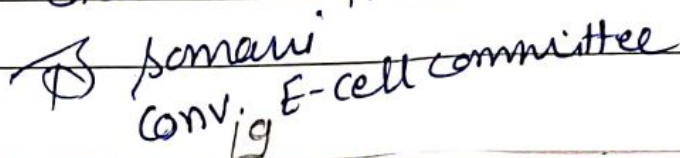 Somani
Conv. E-cell committee